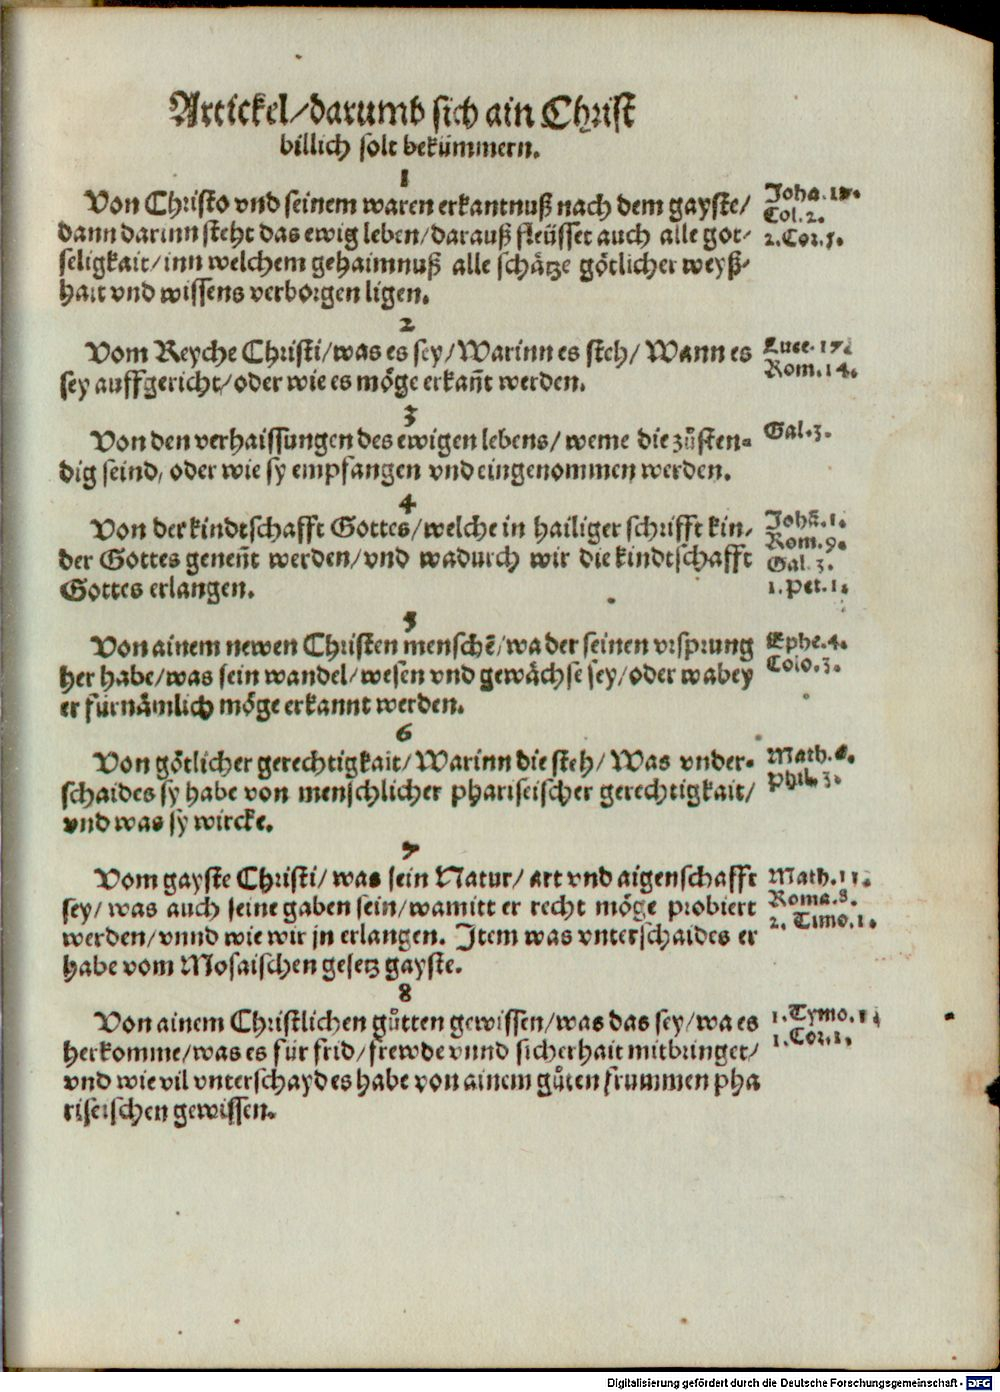 Artickel/darumb sich ain Christ
billich solt bekümmern.
1
Von Christo vnd seinem waren erkantnuß nach dem gayste/
dann darinn steht das ewig leben/darauß fleüsset auch alle got-
seligkait/inn welchem gehaimnuß alle schätze götlicher weyß-
hait vnd wissens verborgen ligen.
Joha. 17.
Col. 2.
2. Cor. 5.
2
Vom Reyche Christi/was es sey/Warinn es steh/Wann es
sey auffgericht/oder wie es möge erkañt werden.
Luce. 17.
Rom. 14.
3
Von den verhaissungen des ewigen lebens/weme die zůsten-
dig seind/oder wie sy empfangen vnd eingenommen werden.
Gal. 3.
4
Von der kindtschafft Gottes/welche in hailiger schrifft kin-
der Gottes geneñt werden/vnd wadurch wir die kindtschafft
Gottes erlangen.
Johã. 1.
Rom. 9.
Gal. 3.
1. Pet. 1.
5
Von ainem newen Christen menschẽ/wa der seinen vrsprung
her habe/was sein wandel/wesen vnd gewächse sey/oder wabey
er fürnämlich möge erkannt werden.
Ephe. 4.
Colo. 3.
6
Von götlicher gerechtigkait/Warinn die steh/Was vnder-
schaides sy habe von menschlicher phariseischer gerechtigkait/
vnd was sy wircke.
Math. 6.
Phil. 3.
7
Vom gayste Christi/was sein Natur/art vnd aigenschafft
sey/was auch seine gaben sein/wamitt er recht möge probiert
werden/vnnd wie wir jn erlangen. Item was vnterschaides er
habe vom Mosaischen gesetz gayste.
Math. 11.
Roma. 8.
2. Timo. 1.
8
Von ainem Christlichen gůtten gewissen/was das sey/wa es
herkomme/was es für frid/frewde vnnd sicherhait mitbringet/
vnd wie vil vnterschaydes habe von ainem gůten frummen pha
riseischen gewissen.
1. Tymo. 1.
1. Cor. 1.
Digitalisierung gefördert durch die Deutsche Forschungsgemeinschaft - DFG